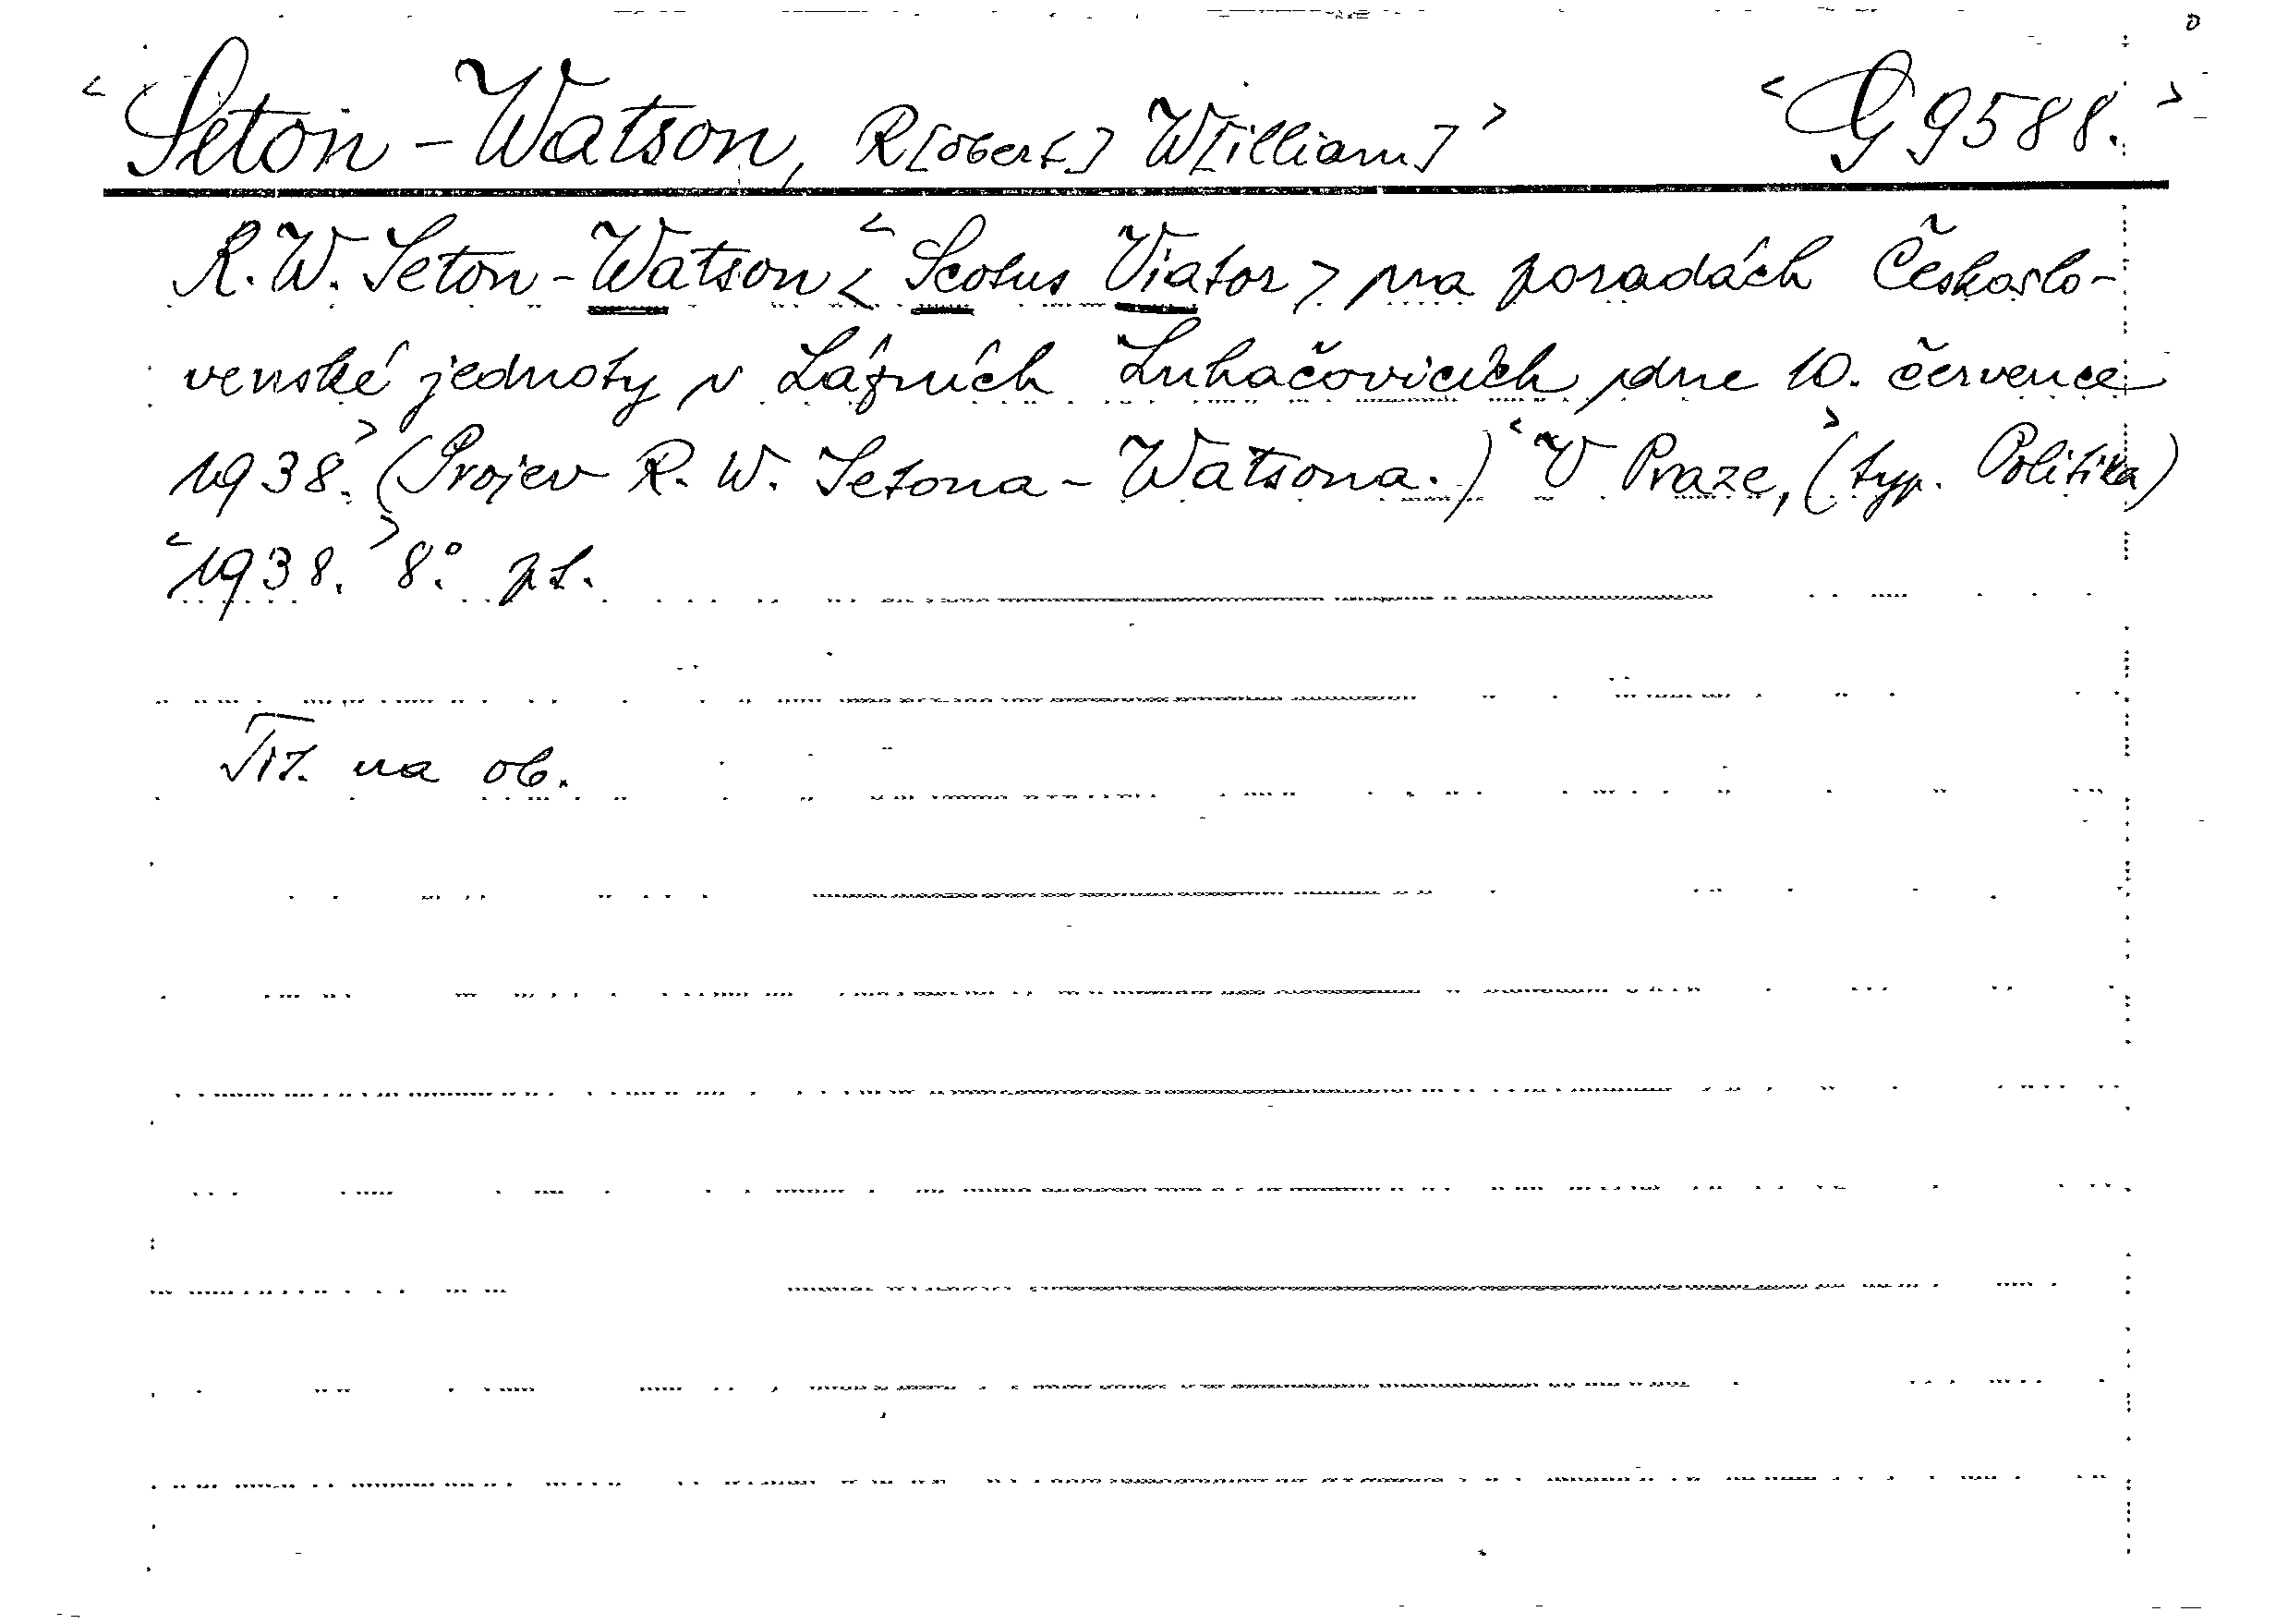 <Seton-Watson, R[obert] W[illiam]> <G 9588.>
R. W. Seton-Watson < Scotus Viator > na poradách Českoslo-
venské jednoty v Lázních Luhačovicích dne 10. července
1938.> (Projev R. W. Setona-Watsona.) <V Praze,> (typ. Politika)
<1938.> 8°. pt.
Tit. na ob.